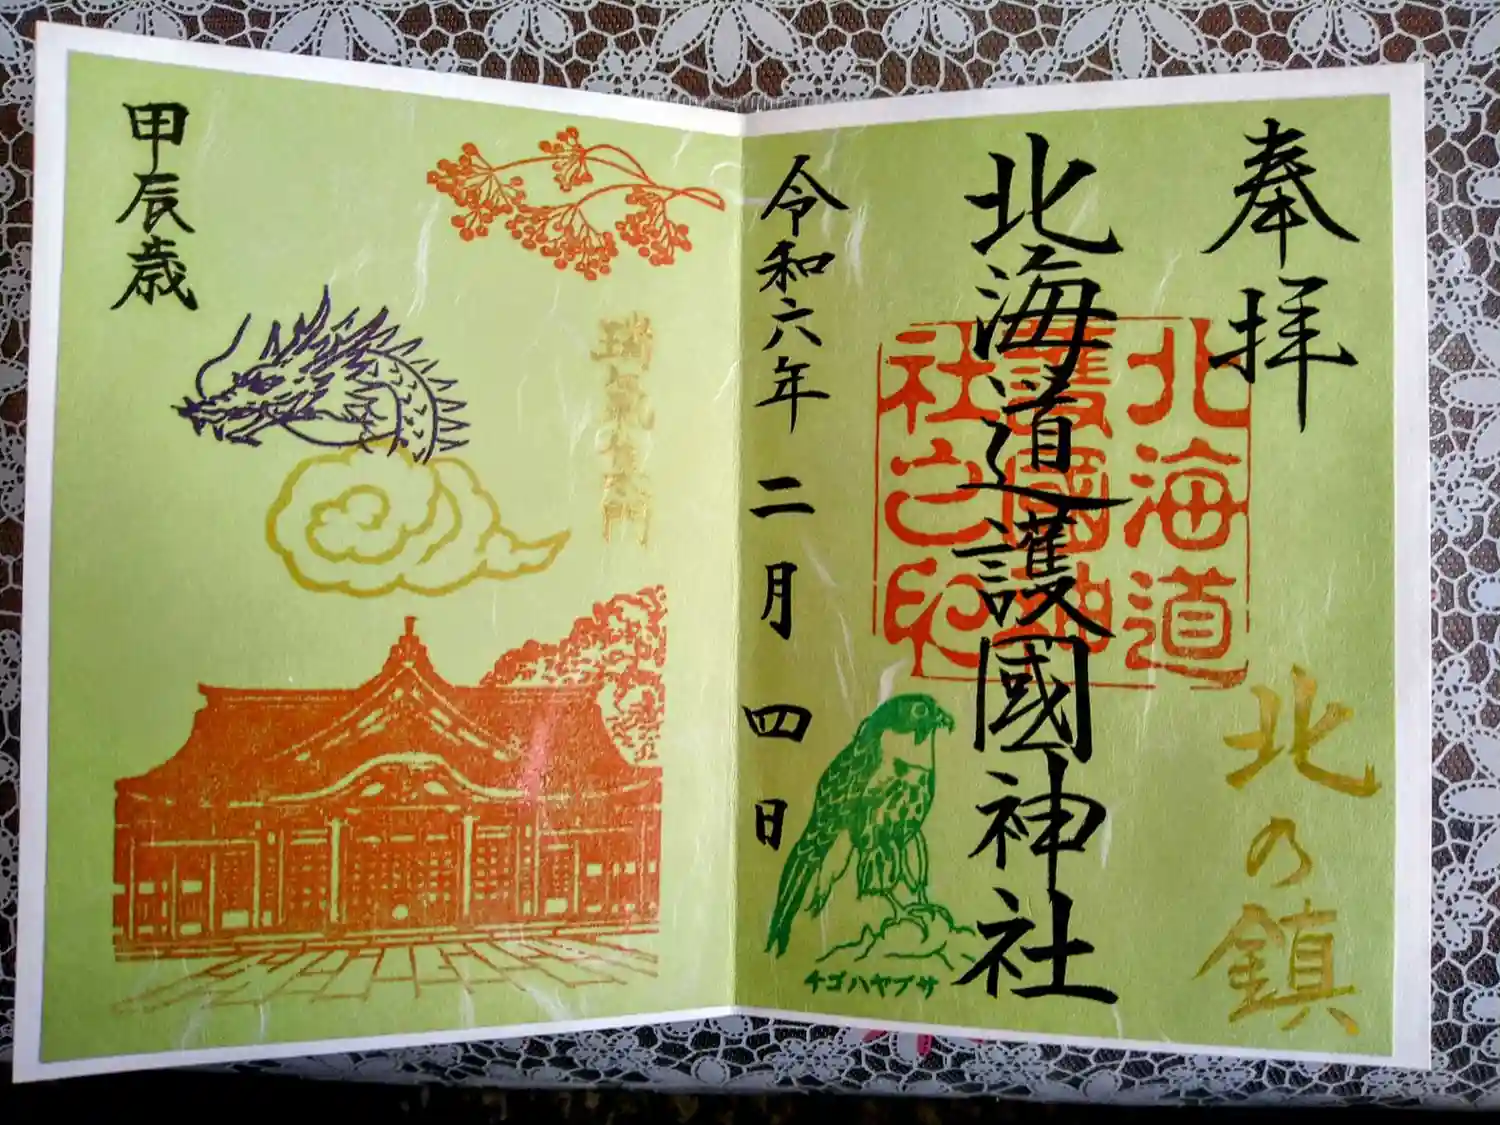 奉拝
北の鎮
北海道護國神社
北海道
護國神
社之印
令和六年 二月 四日
チゴハヤブサ
瑞氣集門
甲辰歳